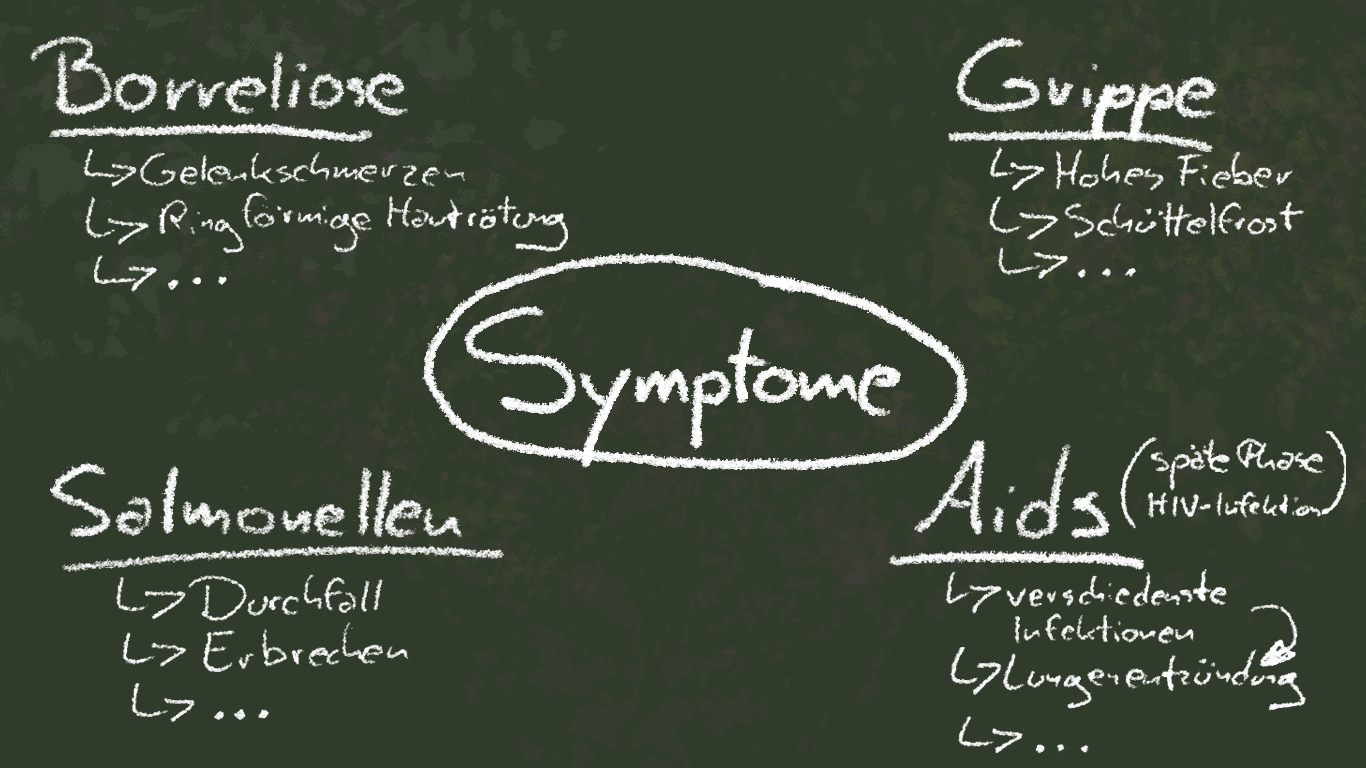 Borreliose
Gelenkschmerzen
Ringförmige Hautrötung
...
Grippe
Hohes Fieber
Schüttelfrost
...
Symptome
Salmonellen
Durchfall
Erbrechen
...
Aids (späte Phase
HIV-Infektion)
verschiedenste
Infektionen
Lungenentzündung
...